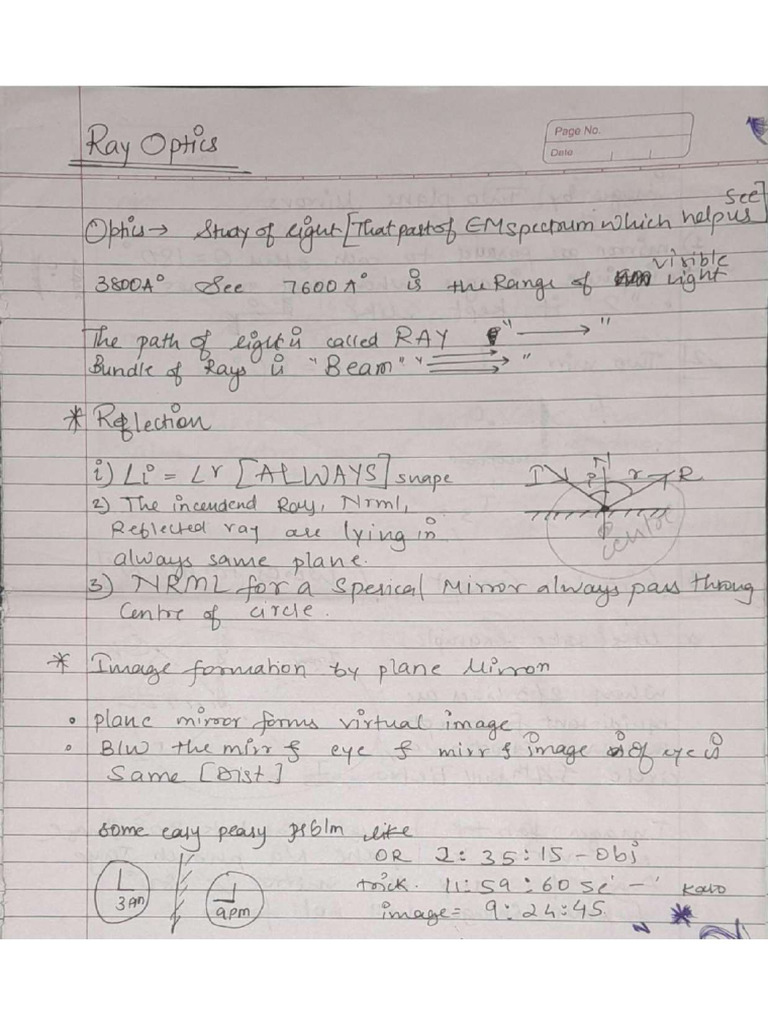 Page No.
Date
Ray Optics
Optics → Study of light [That part of EM spectrum which help us see]
3800A° See 7600A° is the Range of visible light
The path of light is called RAY " → "
Bundle of Rays is "Beam" " "
* Reflection
i) Li = Lr [ALWAYS] snape
I N r R
2) The incendend Ray, Nrml,
Reflected ray are lying in
centre
always same plane.
3) NRML for a Sperical Mirror always pass throug
Centre of circle.
* Image formation by plane Mirror
• plane mirror forms virtual image
• B/W the mirr & eye & mirr & image of eye is
Same [Dist]
some easy peasy prblm like
OR 2:35:15 - Obj
trick. 11:59:60 se - karo
3AM 9pm
image = 9:24:45